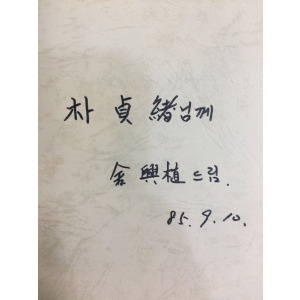 朴貞緖님께
金興植드림.
85. 9. 10.